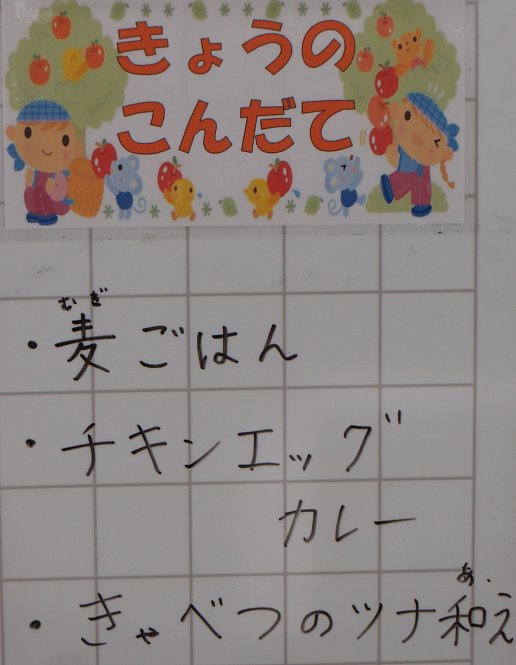 きょうの
こんだて
むぎ
・麦ごはん
・チキンエッグ
カレー
あ
・きゃべつのツナ和え